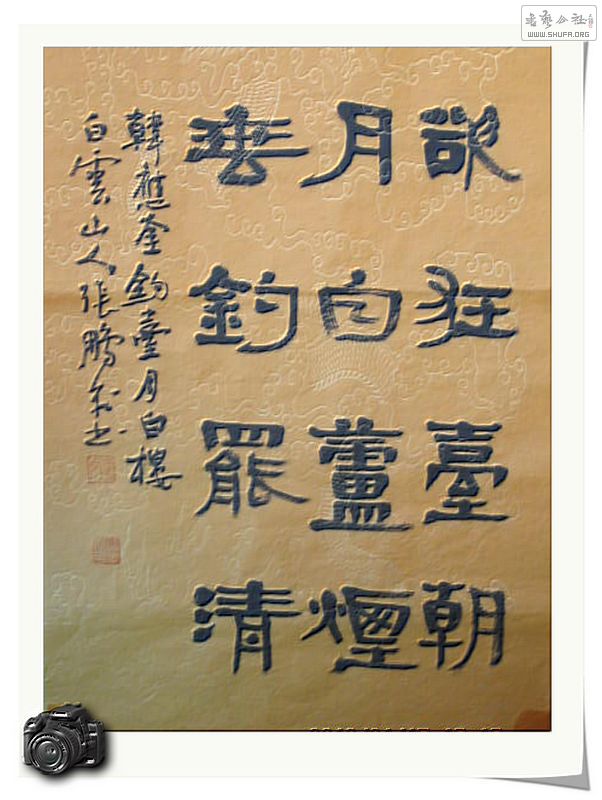 书艺公社
WWW.SHUFA.ORG
狂臺朝
月白蘆煙
垂釣罷清
韓應奎釣臺月白樓
白雲山人張鵬